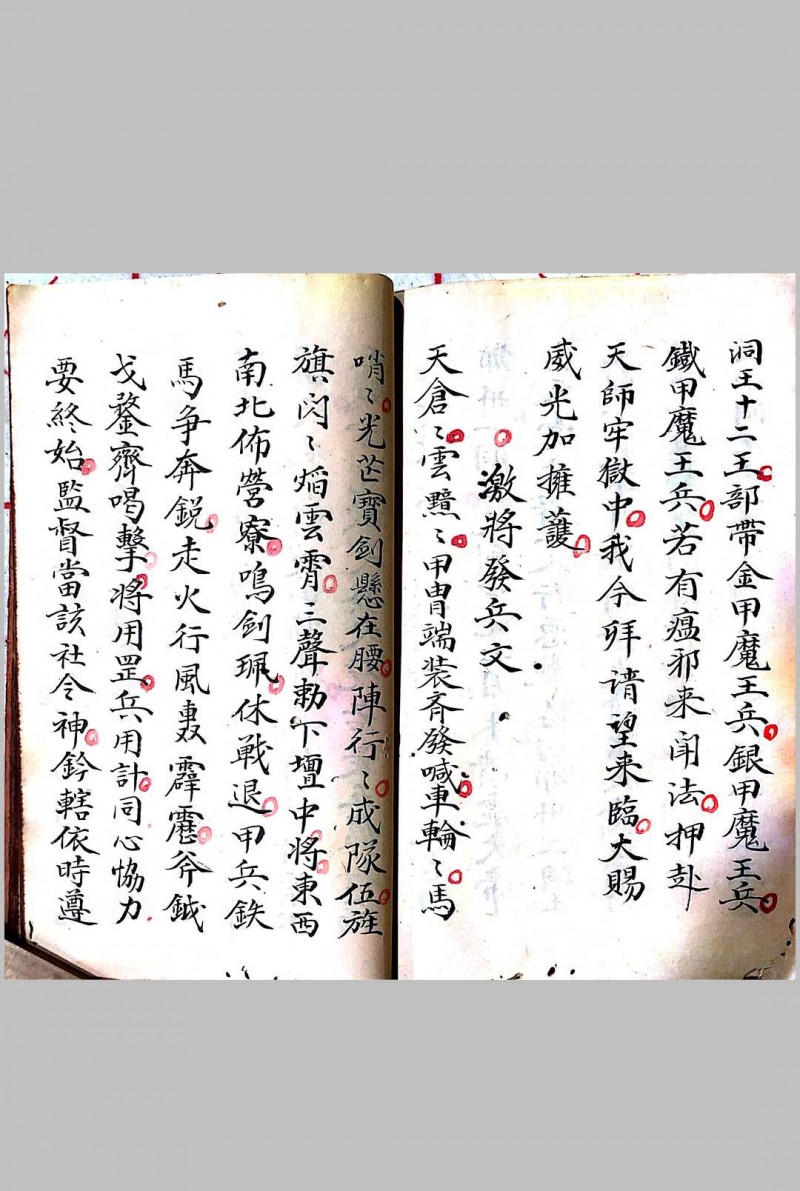 洞王十二王部帶金甲魔王兵銀甲魔王兵
鐵甲魔王兵若有瘟邪来闹法押赴
天師牢獄中我今拜请望来臨大賜
威光加擁護
激将發兵文
天倉〻雲黯〻甲冑端装齐發喊車輪〻馬
哨〻光芒寶劍懸在腰陣行〻成隊伍旌
旗闪〻焰雲霄三聲勅下壇中將東西
南北佈營寮鳴剑珮休戦退甲兵鉄
馬争奔鋭走火行風轟霹靂斧鉞
戈鍪齊喝擊将用罡兵用計同心恊力
要終始監督當該社令神鈐轄依時遵